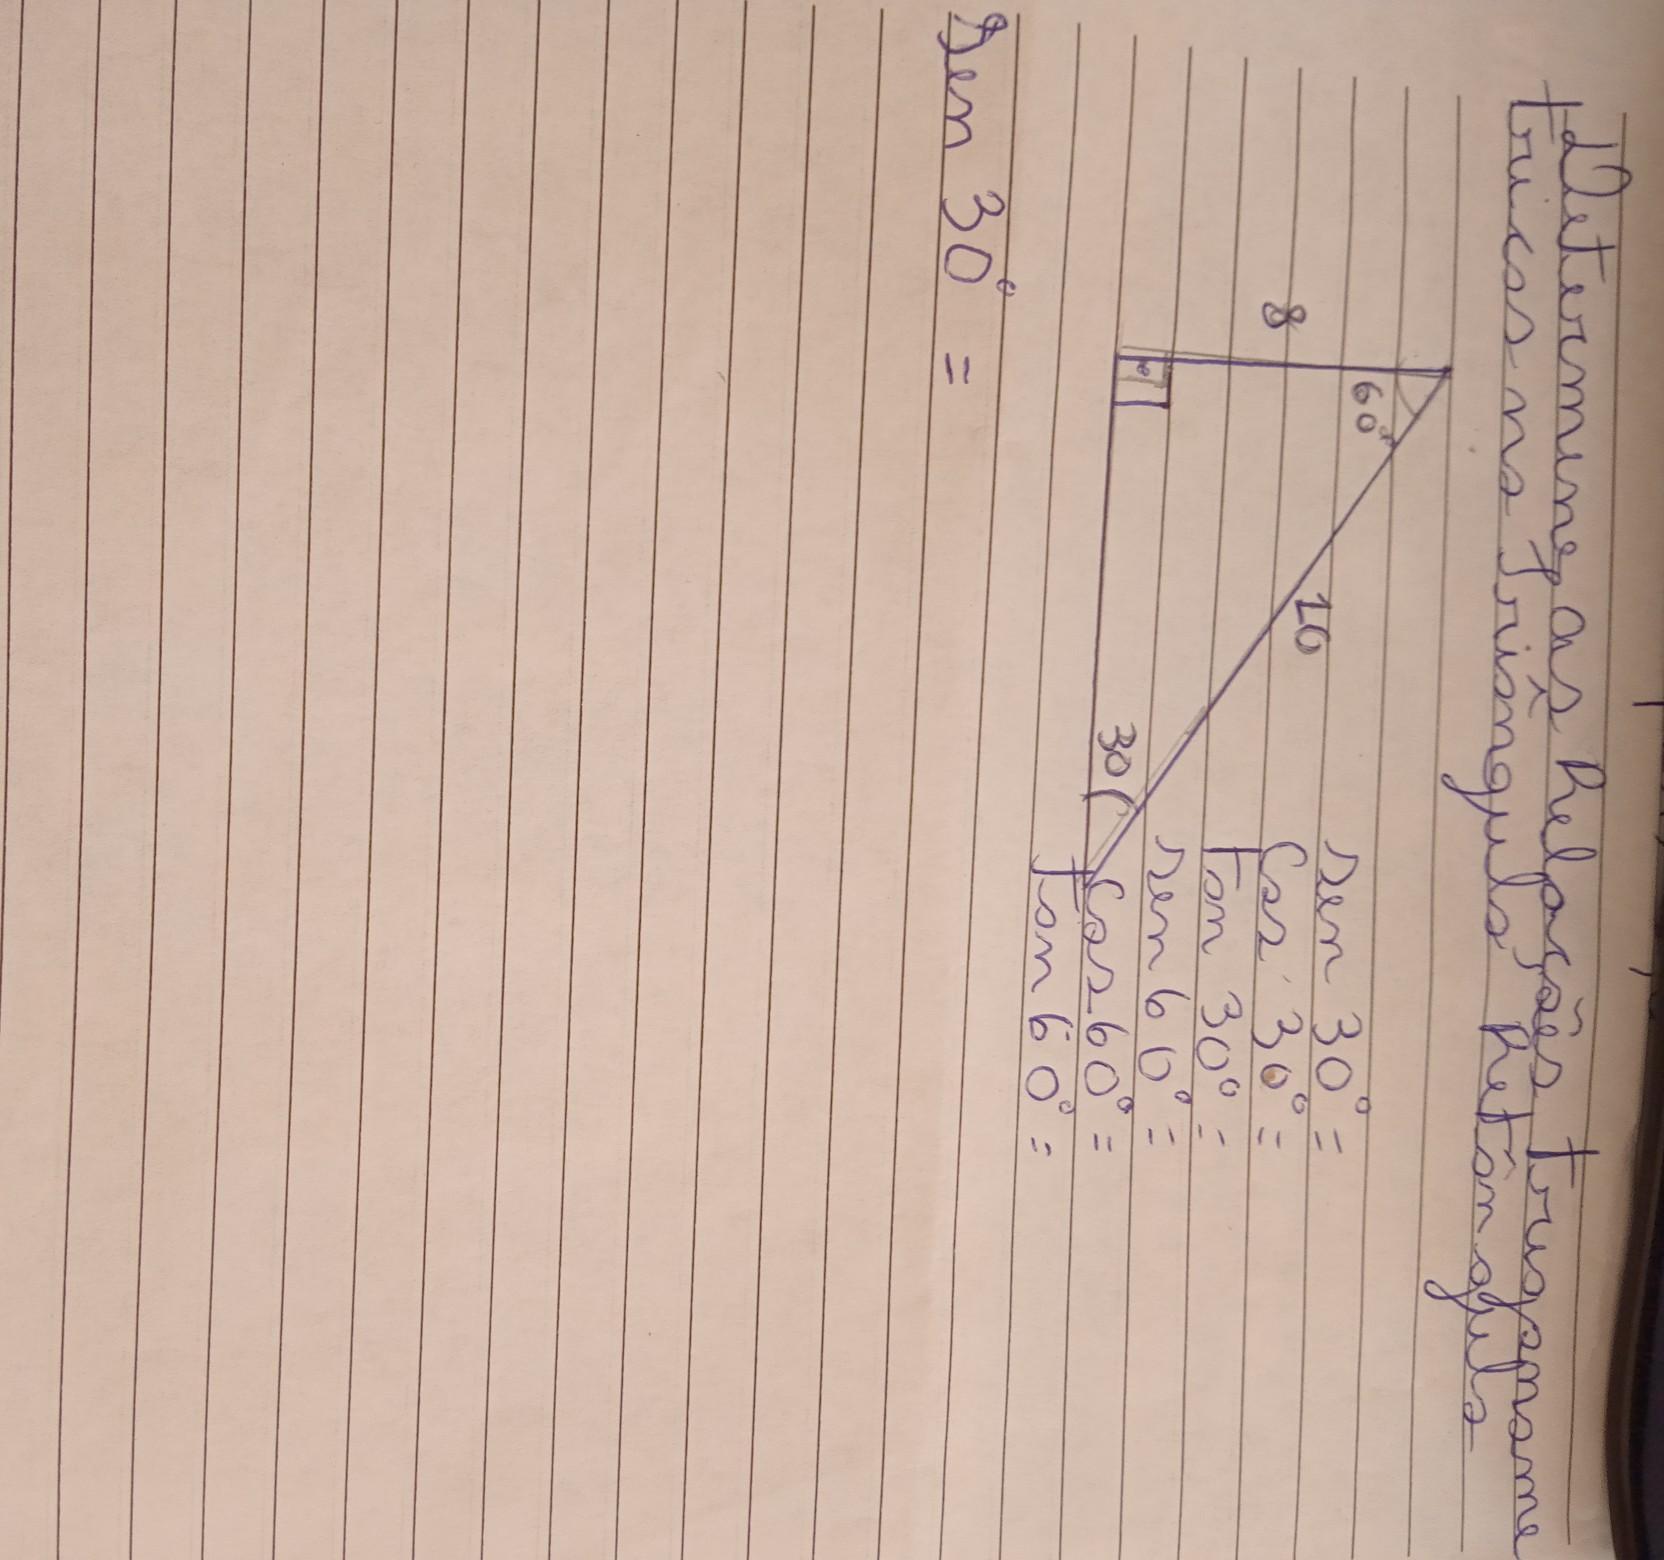 Determine as Relações trigonome
tricas no Triângulo Retângulo
8
60°
10
30
sen 30° =
Cos 30° =
Tan 30° =
sen 60° =
Cos 60° =
Tan 60° =
Sen 30° =